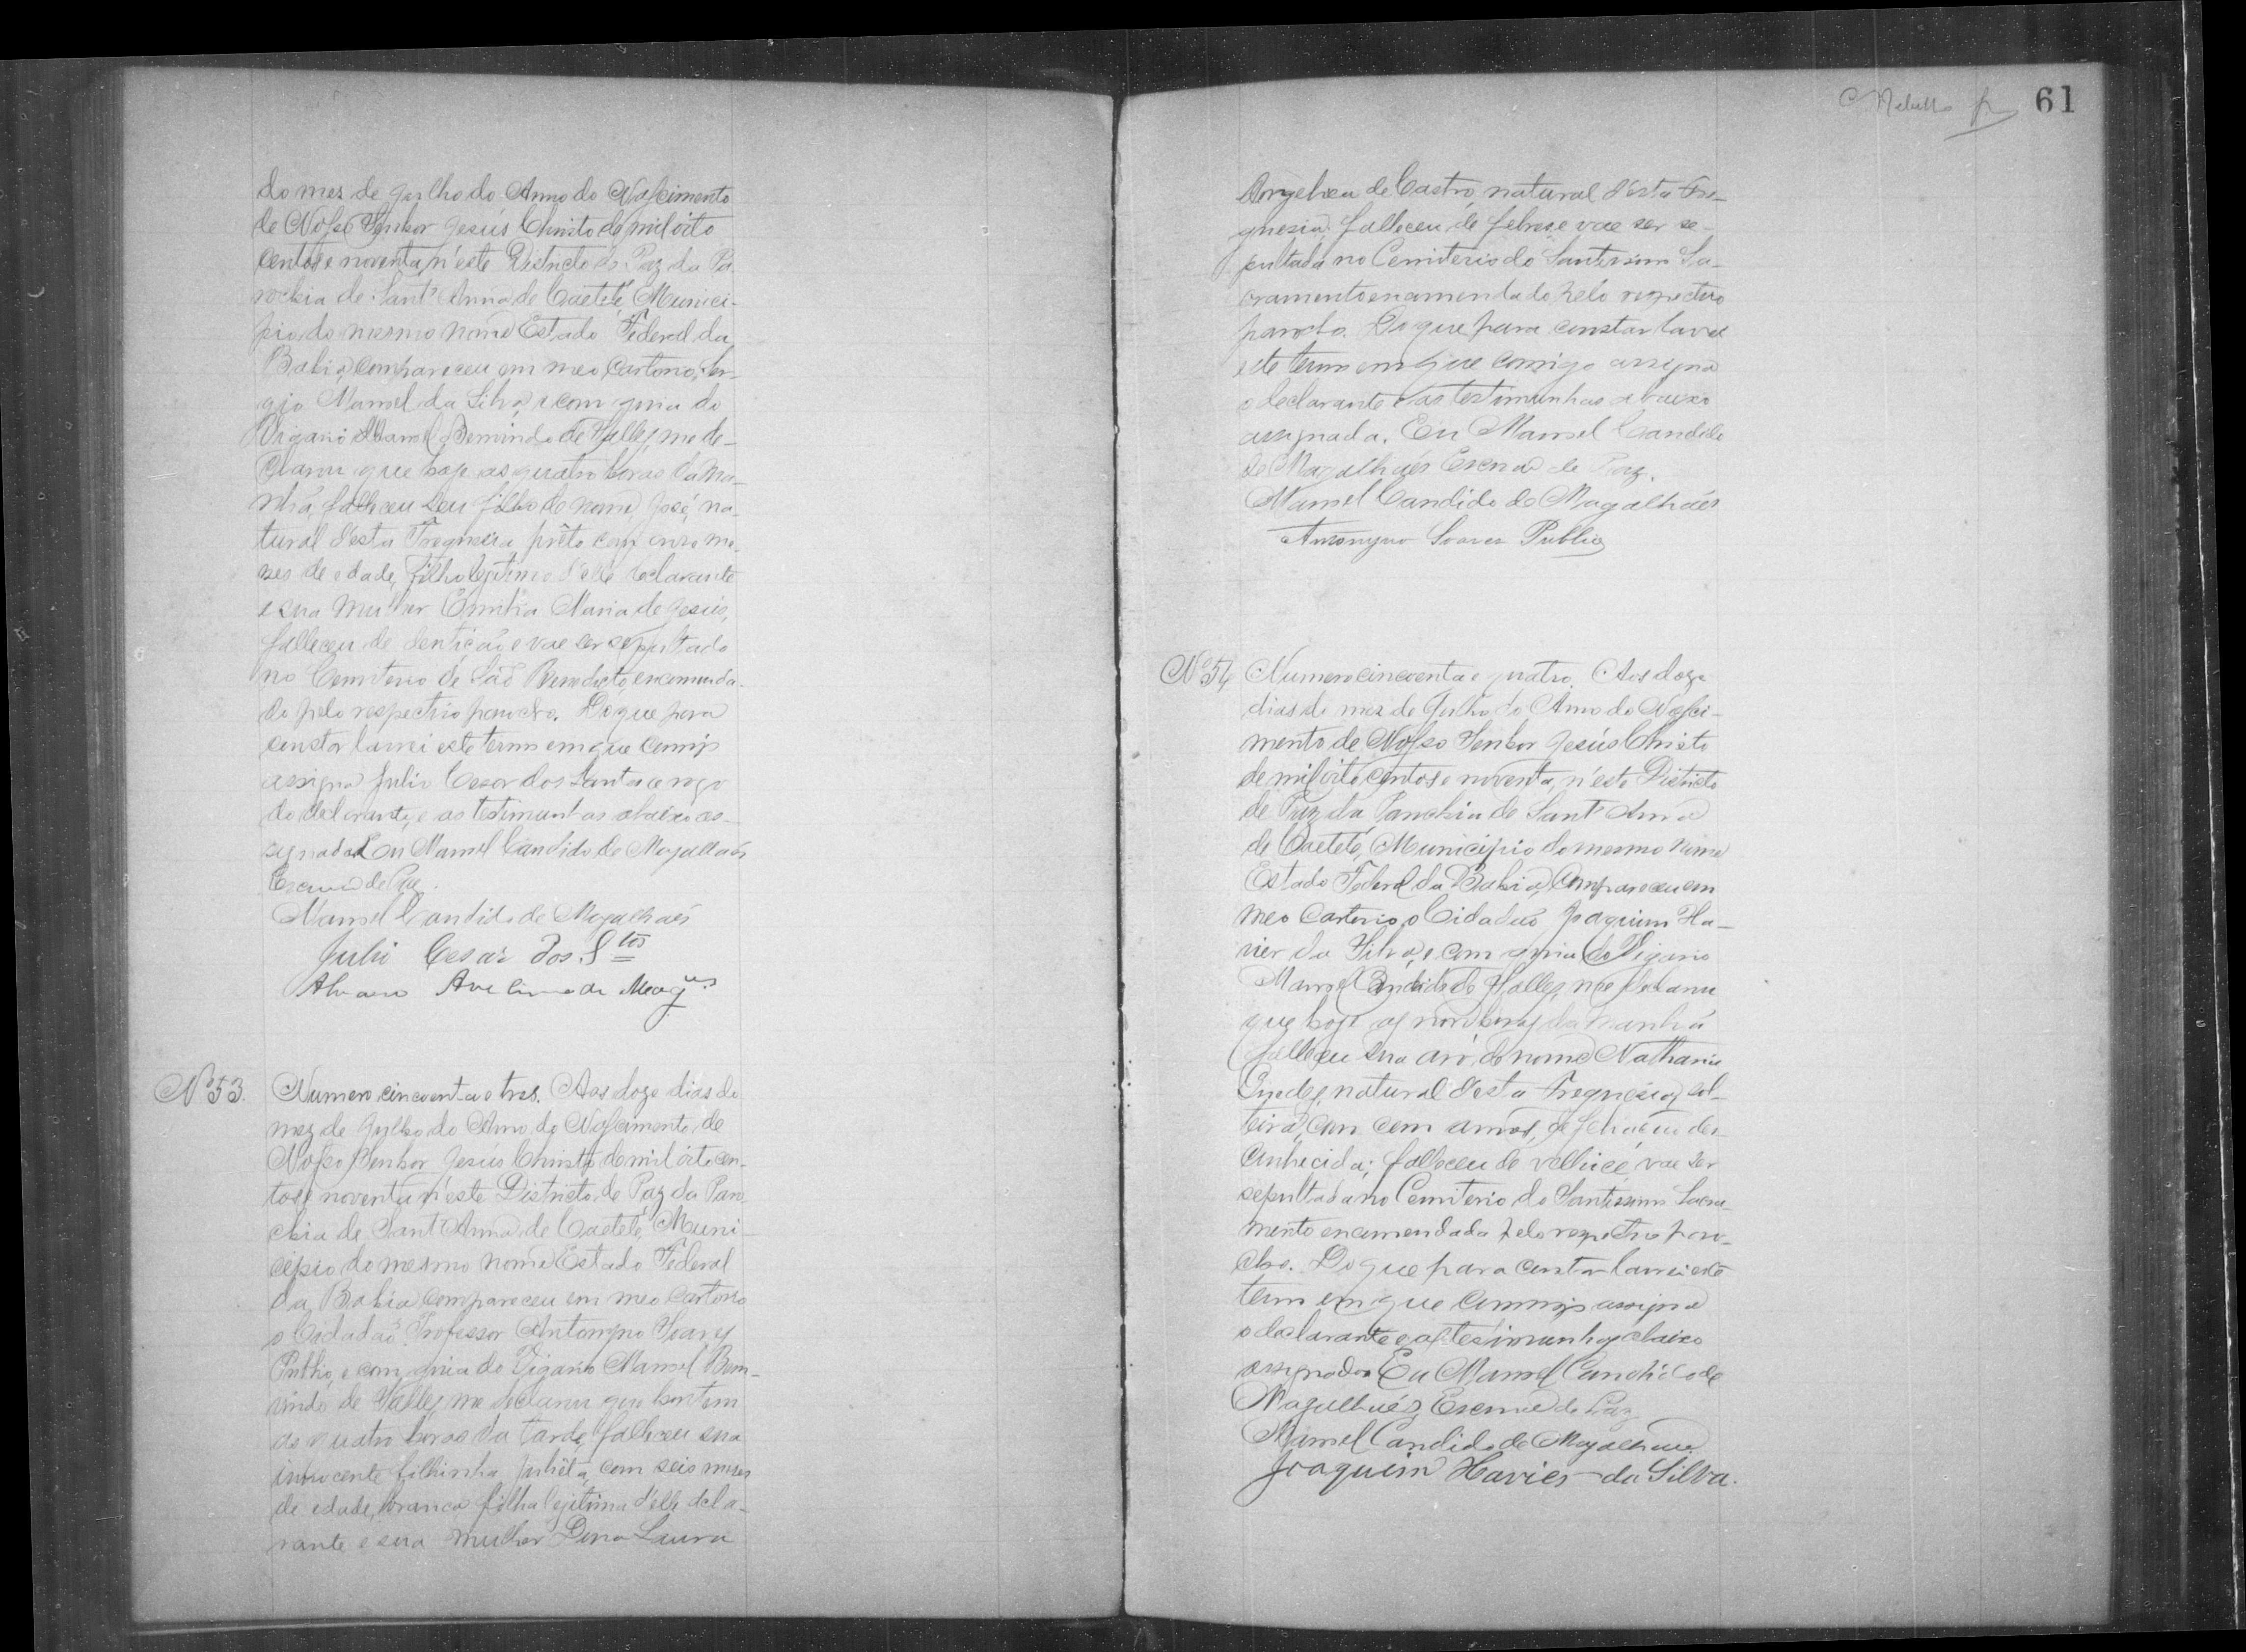 do mes de Julho do Anno do Nascimento
de Nosso Senhor Jesús Christo de mil oito
centos e noventa, n'este Districto de Paz da Pa-
rochia de Sant'Anna de Caeteté, Munici-
pio do mesmo nome Estado Federal da
Bahia, compareceu em meo Cartorio, Ser-
gio Manoel da Silva, e com guia do
Vigario Manoel Bemvindo de Salles, me de-
clarou que hoje as quatro horas da ma-
nhã, falleceu seu filho de nome José, na-
tural d'esta Freguesia prêto com onze me-
zes de edade, filho legitimo d'elle declarante
e sua mulher Emilia Maria de Jesús,
falleceu de dentição e vae ser sepultado
no Cemiterio de São Benedicto, encommenda-
do pelo respectivo parocho. Do que para
constar lavrei este termo em que comigo
assigna Julio Cesar dos Santos a rogo
do declarante, e as testimunhas abaixo as-
signadas. Eu Manoel Candido de Magalhaés
Escrivão de Paz.
Manoel Candido de Magalhaés
Julio Cesar dos Stos
Alvaro Avelino de Magues
Nº 53. Numero cincoenta e tres. Aos doze dias do
mez de Julho do Anno do Nascimento de
Nosso Senhor Jesús Christo de mil oito cen-
tos e noventa n'este Districto de Paz da Paro
chia de Sant'Anna de Caeteté, Muni-
cipio do mesmo nome Estado Federal
da Bahia compareceu em meo Cartorio
o Cidadão Professor Antonyno Soares
Publio, e com guia do Vigario Manoel Bem-
vindo de Salles, me declarou que hontem
as quatro horas da tarde, falleceu sua
innocente filhinha Juliêta, com seis mezes
de edade, branca filha legitima d'elle decla-
rante e sua mulher Dona Laura
61
Angelica de Castro, natural d'esta Fre-
guesia; falleceu de febre, e vae ser se-
pultada no Cemiterio do Santissimo Sa-
cramento encommendada pelo respectivo
parocho. Do que para constar lavrei
este termo em que comigo assigna
o declarante e as testimunhas abaixo
assignada. Eu Manoel Candido
de Magalhaés Escrivão de Paz.
Manoel Candido de Magalhaés
Antonyno Soares Publio
Nº 54 Numero cincoenta e quatro. Aos doze
dias do mez de Julho do Anno do Nasci-
mento de Nosso Senhor Jesús Christo
de mil oito centos e noventa, n'este Districto
de Paz da Parochia de Sant'Anna
de Caeteté, Municipio do mesmo nome
Estado Federal da Bahia, compareceu em
meo Cartorio, o Cidadão Joaquim Ha-
vier da Silva, e com guia do Vigario
Manoel Bemvindo de Salles, me declarou
que hoje as nove horas da manhã
falleceu sua avó, de nome
natural d'esta Freguesia, sol-
teira, com cem annos, de filiação des-
conhecida; falleceu de velhice, vae ser
sepultada no Cemiterio do Santissimo Sacra-
mento encommendada pelo respectivo paro-
cho. Do que para constar lavrei este
termo em que commigo assigna
o declarante e as testimunhas abaixo
assignados Eu Manoel Candido de
Magalhaés Escrivão de Paz
Manoel Candido de Magalhaes
Joaquim Havier da Silva.